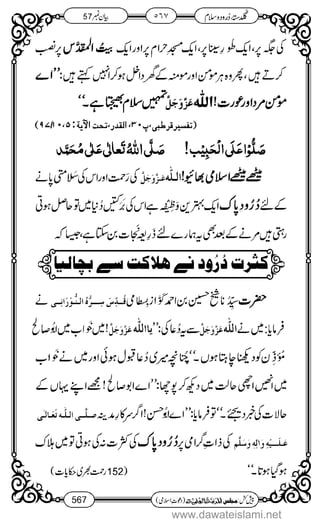 گلدستۂ دُرُود و سلام ۵٦٧ بیان نمبر 57
یکی جگہ پر، ایک طورِ سینا پر، ایک مسجدِ حرام پر اور ایک بیتُ المقدَّس پر نصب
کرتے ہیں، پھر وہ ہر مؤمن اور مؤمنہ کے گھر داخل ہو کر انہیں کہتے ہیں: ’’اے
مؤمن مرد اور عورت! اللہ عَزَّوَجَلَّ تمہیں سلام بھیجتا ہے۔‘‘
(تفسیر قرطبی، پ۳۰، القدر، تحت الآیۃ: ۵، ۱۰/۹۷)
صَلُّوْا عَلَی الْحَبِیْب! صَلَّی اللہُ تَعَالٰی عَلٰی مُحَمَّد
میٹھے میٹھے اسلامی بھائیو! اللہ عَزَّوَجَلَّ کی رَحمت اور اس کی سَلامتی پانے
کے لئے دُرُودِ پاک ایک بہترین وَظیفہ ہے اس کی بَرَکتیں دُنیا میں تو حاصل ہوتی
رہتی ہیں مرنے کے بعد بھی یہ ہمارے لئے ذَرِیعۂ نجات بن سکتا ہے، جیسا کہ
کثرت دُرُود نے ھلاکت سے بچالیا
حضرت سَیِّدُنا شیخ حسین بن احمد کوَّاز بِسطامی قُدِّسَ سِرُّہُ النُّوْرَانِی نے
فرمایا: میں نے اللہ عَزَّوَجَلَّ سے یہ دُعا کی: ’’یا اللہ عَزَّوَجَلَّ! میں خواب میں ابوصالح
مُؤَذِّن کو دیکھنا چاہتا ہوں۔‘‘ چُنانچہ میری دُعا قبول ہوئی اور میں نے خواب
میں انھیں اچھی حالت میں دیکھ کر پوچھا: ’’اے ابوصالح! مجھے اپنے یہاں کے
حالات کی خبر دیجئے۔‘‘ تو فرمایا: ’’اے ابوحَسن! اگر سرکارِ مدینہ صلَّی اللہ تَعَالٰی
عَلَیْہِ وَاٰلِہٖ وَسَلَّم کی ذاتِ گرامی پر دُرُودِ پاک کی کثرت نہ کی ہوتی تو میں ہلاک
ہو گیا ہوتا۔‘‘ (152 رحمت بھری حکایات)
567 پیش کش: مجلس اَلْمَدِیْنَۃُ الْعِلْمِیَّۃ (دعوتِ اسلامی)
www.dawateislami.net